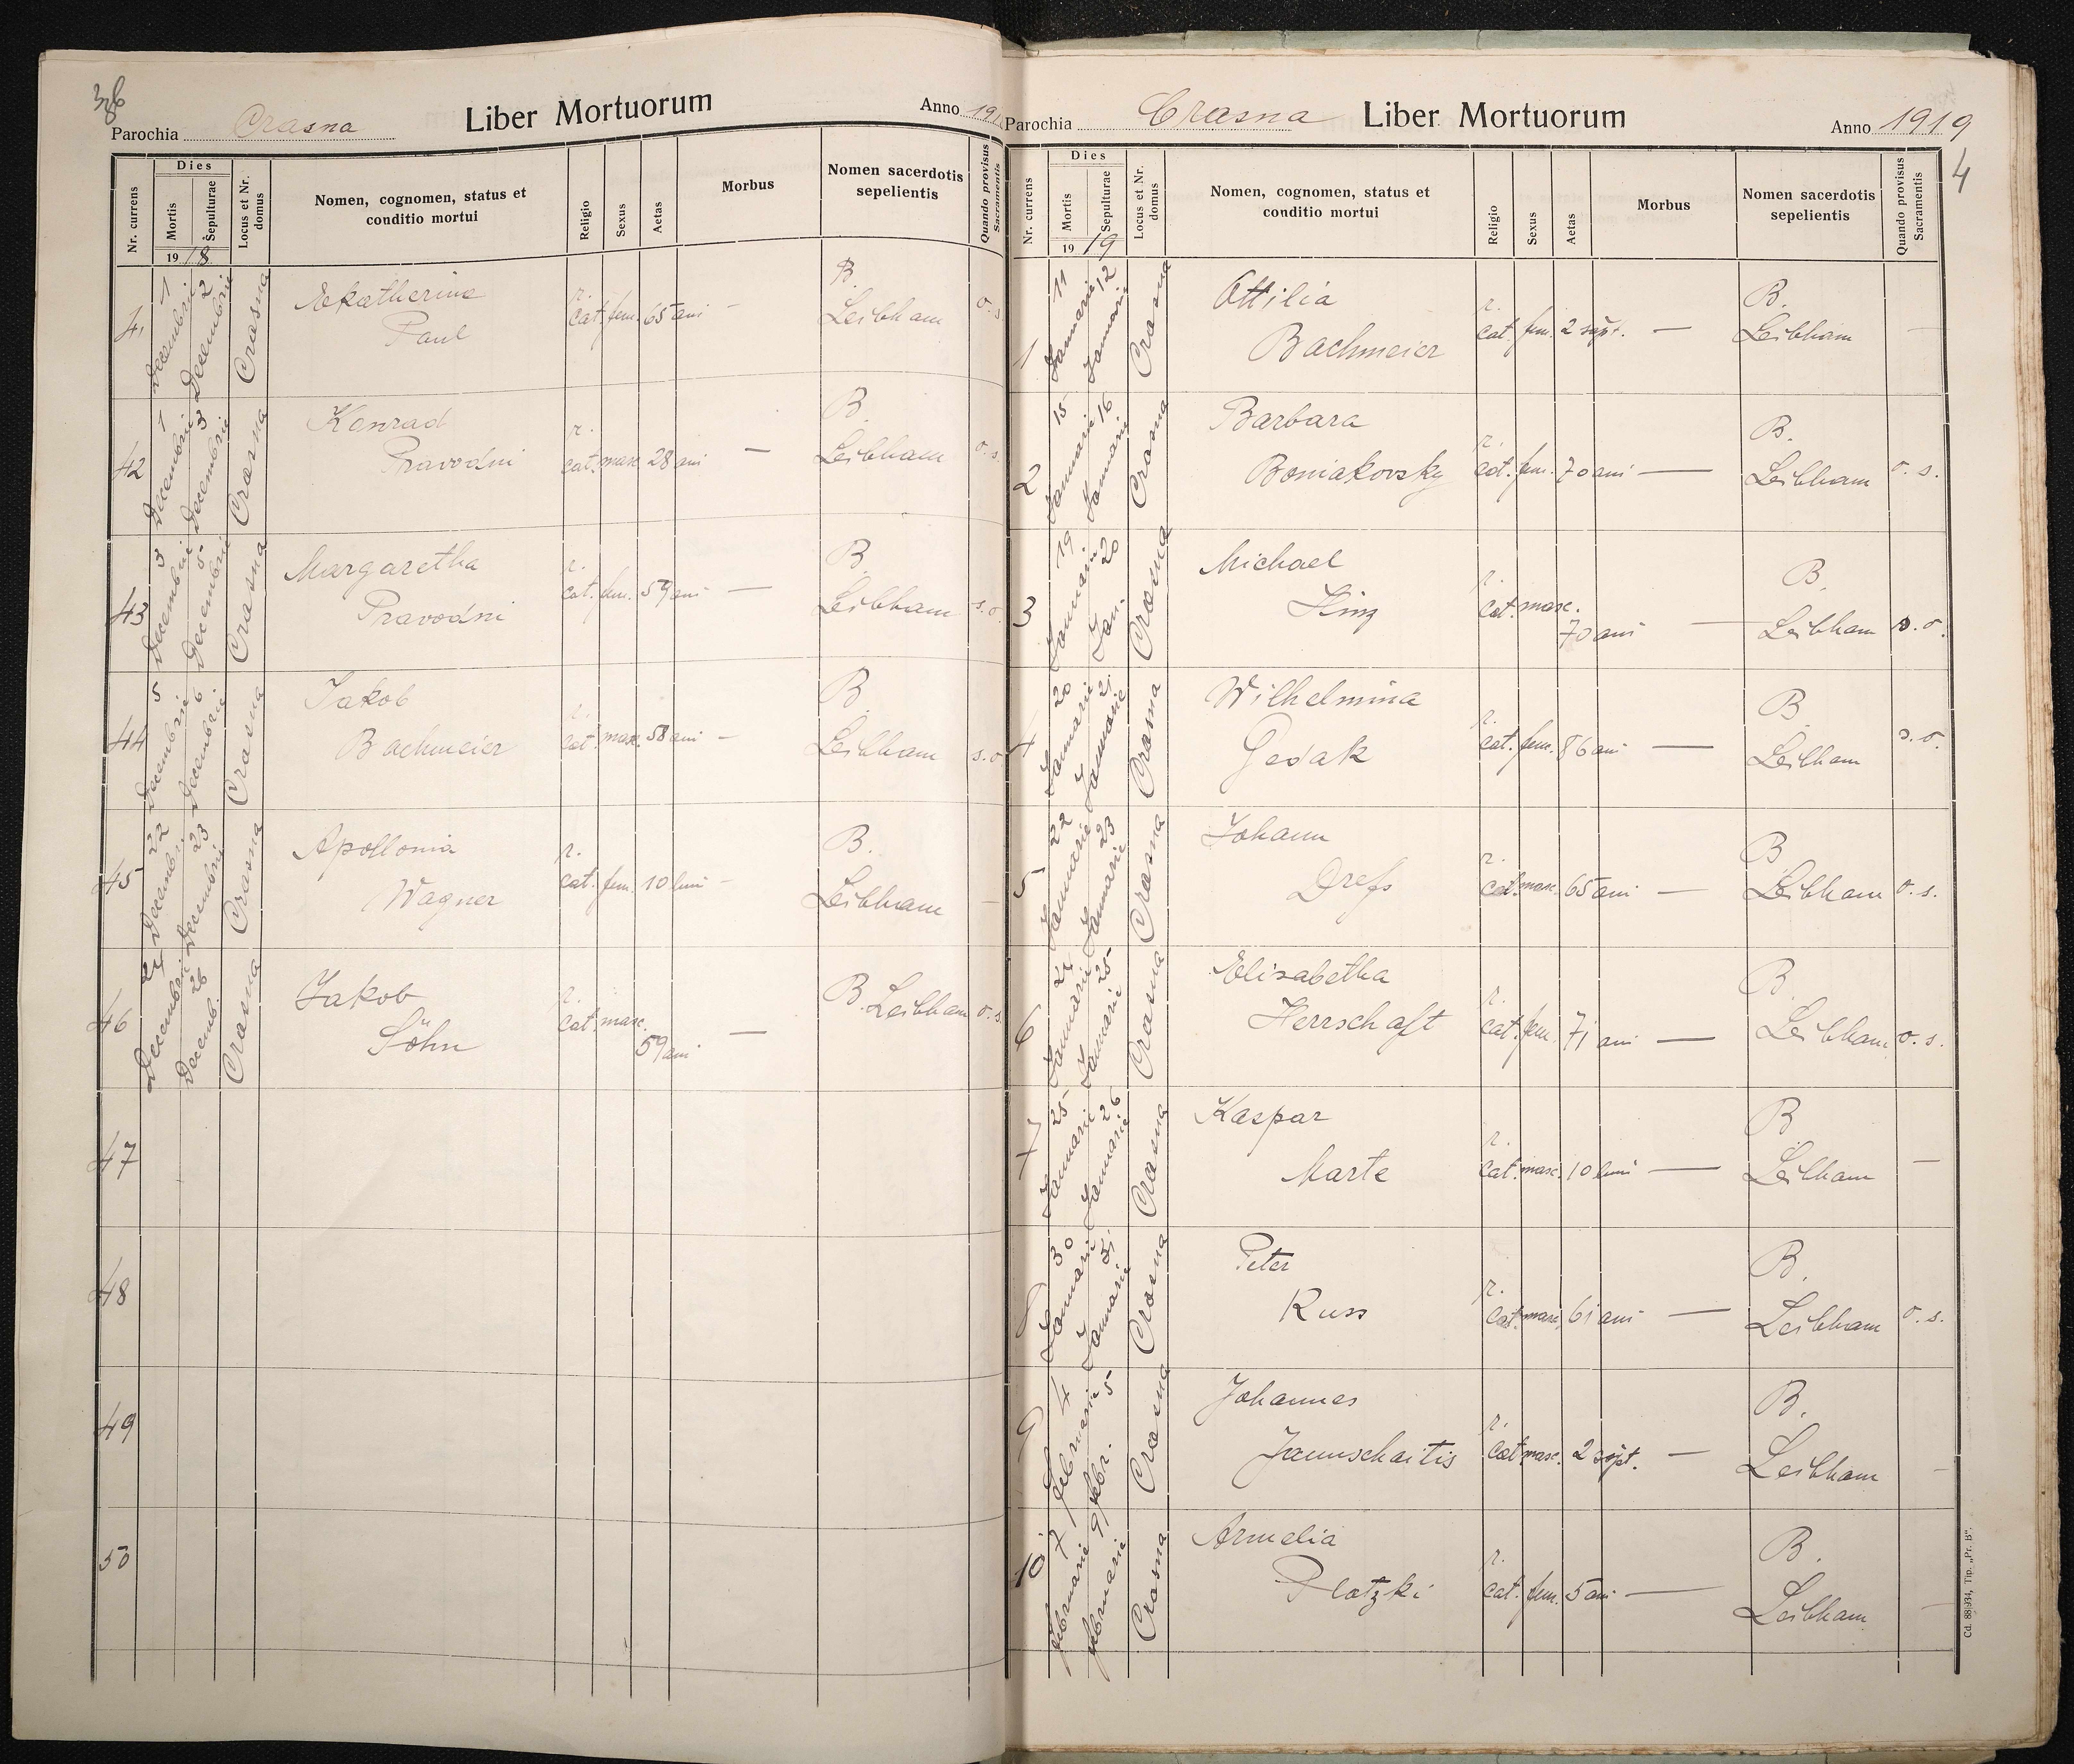 Parochia Crasna Liber Mortuorum Anno 191
Nr. currens
Dies
Mortis
Sepulturae
1918
Locus et Nr. domus
Nomen, cognomen, status et
conditio mortui
Religio
Sexus
Aetas
Morbus
Nomen sacerdotis
sepelientis
Quando provisus
Sacramentis
41 1 Decembrie 2 Decembrie Crasna Ekatherina Paul r. cat. fem. 65 ani — B. Leibham o. s.
42 1 Decembrie 3 Decembrie Crasna Konrad Pravodni r. cat. masc. 28 ani — B. Leibham o. s.
43 3 Decembrie 5 Decembrie Crasna Margaretha Pravodni r. cat. fem. 59 ani — B. Leibham s. o.
44 5 Decembrie 6 Decembrie Crasna Jakob Bachmeier r. cat. masc. 58 ani — B. Leibham s. o.
45 22 Decembrie 23 Decembrie Crasna Apollonia Wagner r. cat. fem. 10 luni — B. Leibham —
46 24 Decembrie 26 Decemb. Crasna Jakob Söhn r. cat. masc. 59 ani — B. Leibham o. s.
47
48
49
50
Parochia Crasna Liber Mortuorum Anno 1919
4
Nr. currens
Dies
Mortis
Sepulturae
1919
Locus et Nr. domus
Nomen, cognomen, status et
conditio mortui
Religio
Sexus
Aetas
Morbus
Nomen sacerdotis
sepelientis
Quando provisus
Sacramentis
1 11 Januarie 12 Januarie Crasna Ottilia Bachmeier r. cat. fem. 2 săpt. — B. Leibham —
2 15 Januarie 16 Januarie Crasna Barbara Boniakovsky r. cat. fem. 70 ani — B. Leibham o. s.
3 19 Januarie 20 Jan. Crasna Michael King r. cat. masc. 70 ani — B. Leibham s. o.
4 20 Januarie 21 Januarie Crasna Wilhelmina Gedak r. cat. fem. 86 ani — B. Leibham s. o.
5 22 Januarie 23 Januarie Crasna Johann Drefs r. cat. masc. 65 ani — B. Leibham o. s.
6 24 Januarie 25 Januarie Crasna Elisabetha Herrschaft r. cat. fem. 71 ani — B. Leibham o. s.
7 25 Januarie 26 Januarie Crasna Kaspar Marte r. cat. masc. 10 luni — B. Leibham —
8 30 Januarie 31 Januarie Crasna Peter Russ r. cat. masc. 61 ani — B. Leibham o. s.
9 4 februarie 5 febr. Crasna Johannes Jaunschaitis r. cat. masc. 2 săpt. — B. Leibham —
10 7 februarie 9 februarie Crasna Armelia Platzki r. cat. fem. 5 ani — B. Leibham —
Cd. 88|934, Tip. „Pr. B".